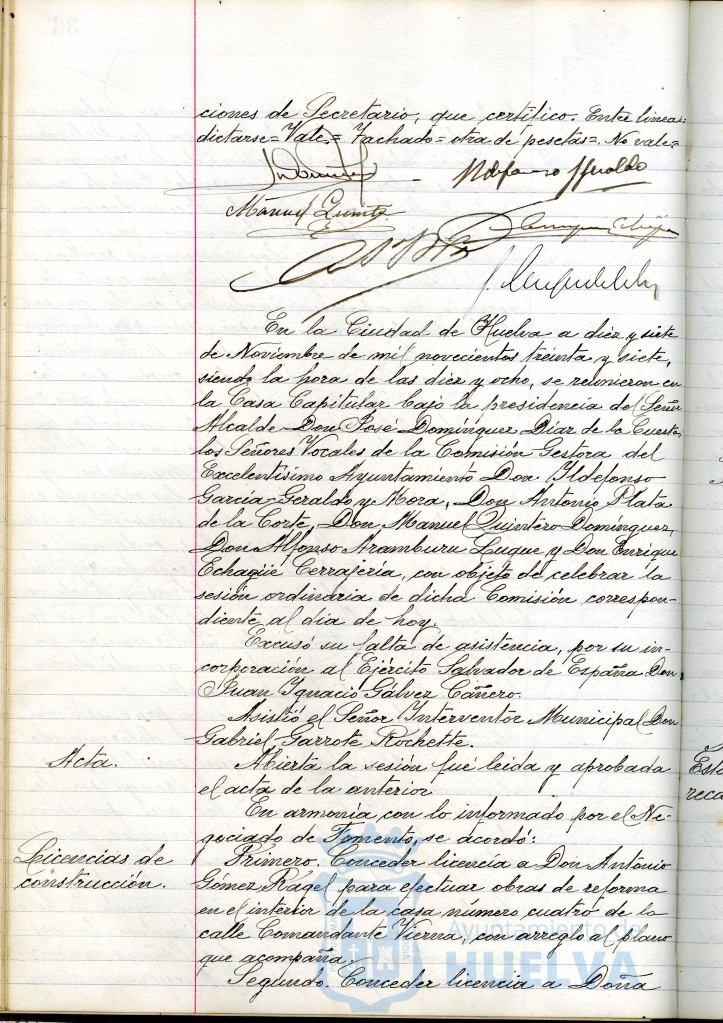 ciones de Secretario, que certifico. Entre lineas=
dictarse= Vale.= Tachado= otra de pesetas=. No vale=
Ildefonso Geraldo
Manuel Quinto
En la Ciudad de Huelva a diez y siete
de Noviembre de mil novecientos treinta y siete,
siendo la hora de las diez y ocho, se reunieron en
la Casa Capitular bajo la presidencia del Señor
Alcalde Don José Domínguez Díaz de la Cuesta,
los Señores Vocales de la Comisión Gestora del
Excelentísimo Ayuntamiento Don Ildefonso
García-Geraldo y Mora, Don Antonio Plata
de la Corte, Don Manuel Quintero Dominguez,
Don Alfonso Aramburu Luque y Don Enrique
Echagüe Cerrajería, con objeto de celebrar la
sesión ordinaria de dicha Comisión correspon-
diente al día de hoy.
Excusó su falta de asistencia, por su in-
corporación al Ejército Salvador de España Don
Juan Ignacio Gálvez Cañero.
Asistió el Señor Interventor Municipal Don
Gabriel Garrote Rochette.
Acta.
Abierta la sesión fué leida y aprobada
el acta de la anterior
En armonía con lo informado por el Ne-
gociado de Fomento, se acordó:
Licencias de
construcción.
Primero. Conceder licencia a Don Antonio
Gómez Ragel para efectuar obras de reforma
en el interior de la casa número cuatro de la
calle Comandante Vierna, con arreglo al plano
que acompaña.
Segundo. Conceder licencia a Doña
Ayuntamiento de
HUELVA